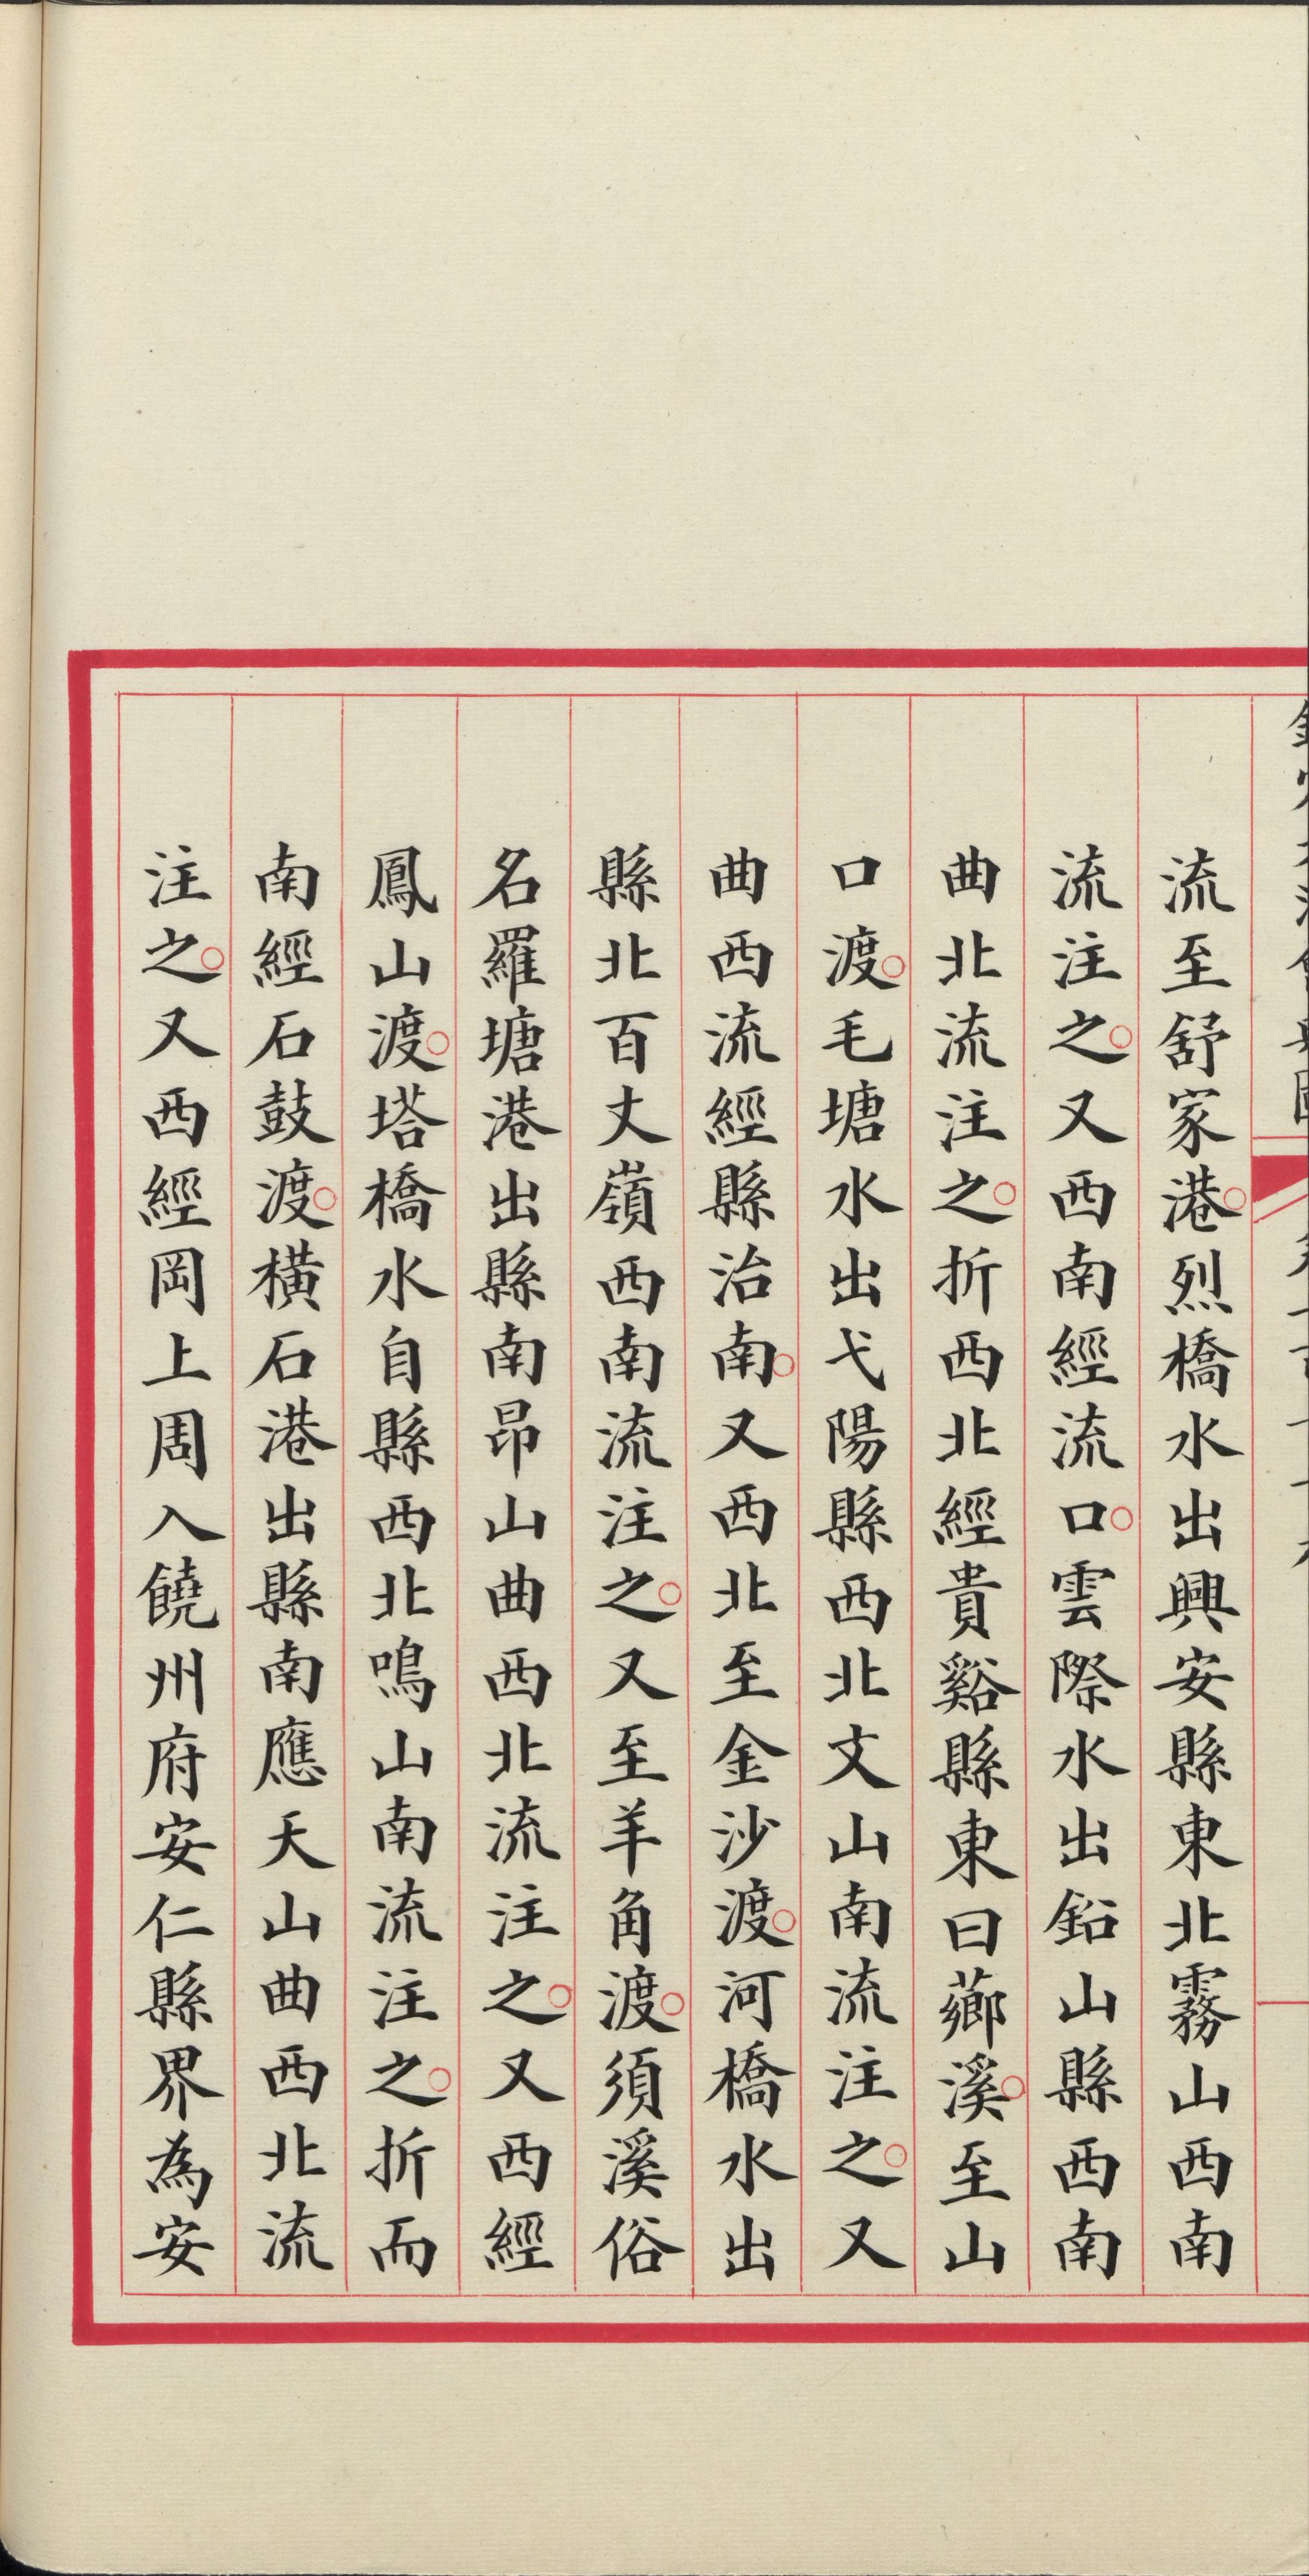 流至舒家港。烈橋水出興安縣東北霧山西南
流注之。又西南經流口。雲際水出鉛山縣西南
曲北流注之。折西北經貴谿縣東曰薌溪。至山
口渡。毛塘水出弋陽縣西北文山南流注之。又
曲西流經縣治南。又西北至金沙渡。河橋水出
縣北百丈嶺西南流注之。又至羊角渡。須溪俗
名羅塘港出縣南昂山曲西北流注之。又西經
鳳山渡。塔橋水自縣西北鳴山南流注之。折而
南經石鼓渡。橫石港出縣南應天山曲西北流
注之。又西經岡上周入饒州府安仁縣界為安